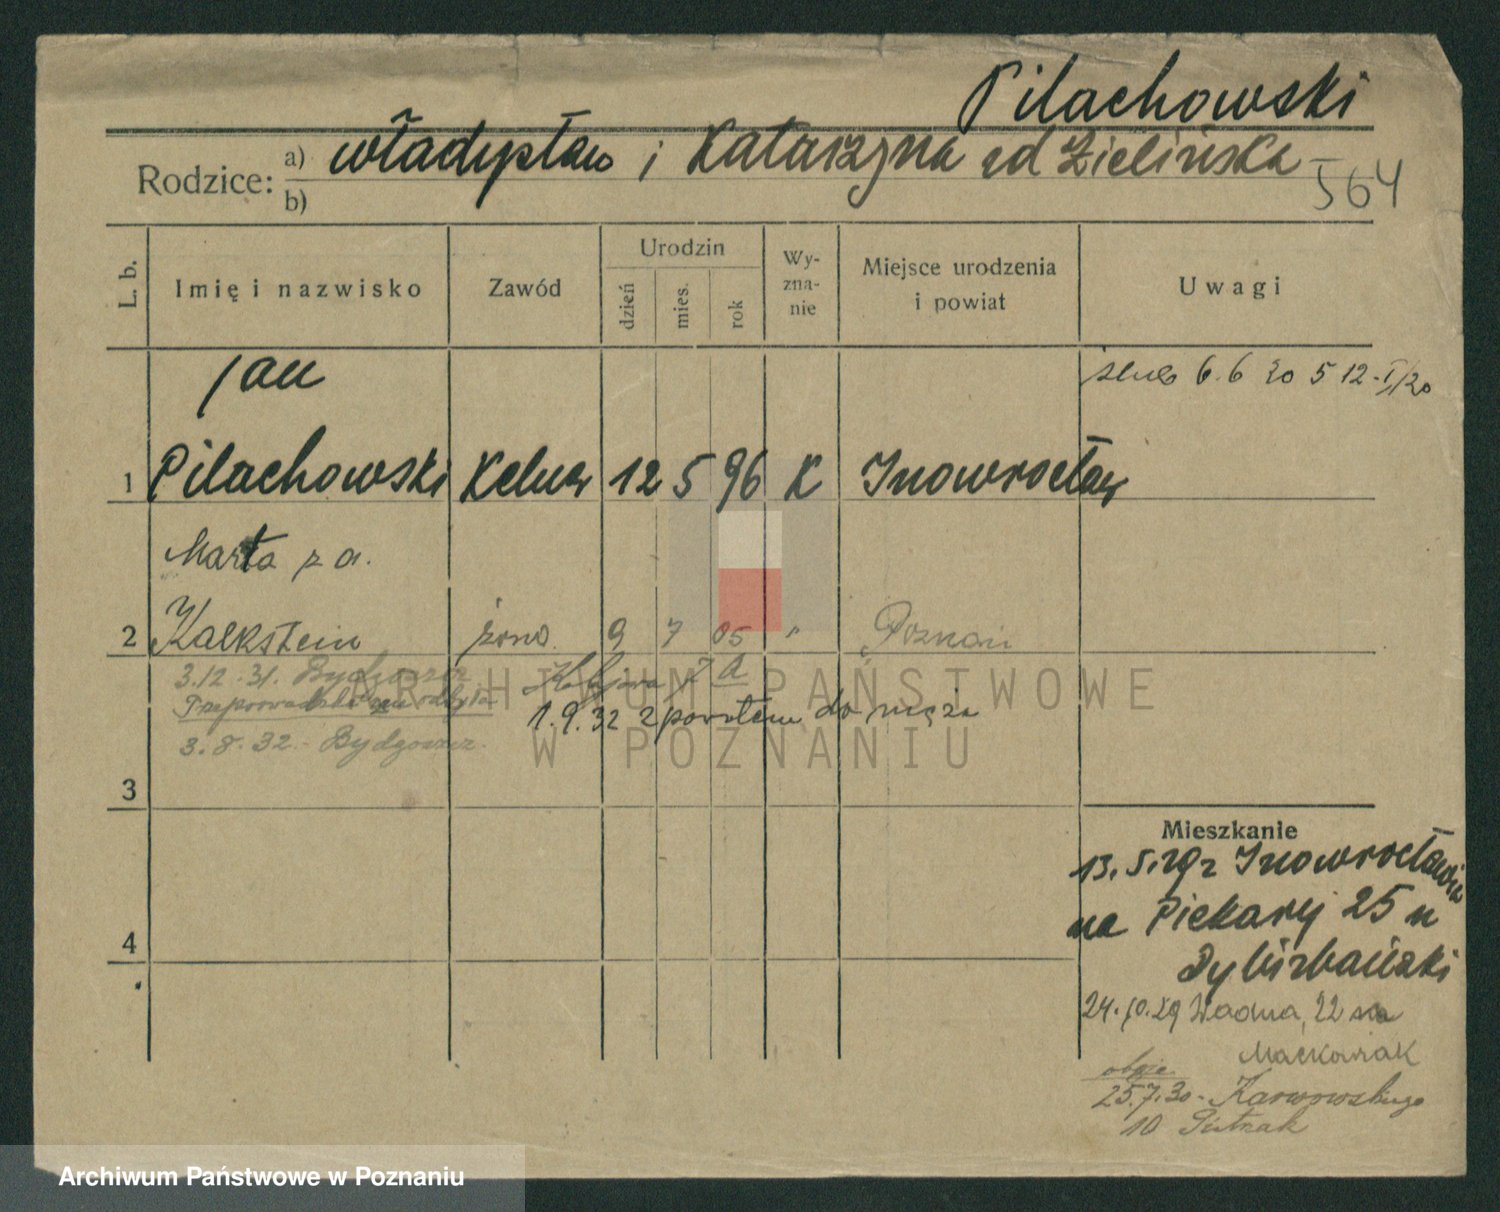 Pilachowski
Rodzice: a) Władysław i Katarzyna Zielińska
b) 564
L. b. Imię i nazwisko Zawód Urodzin dzień mies. rok Wy-zna-nie Miejsce urodzenia i powiat Uwagi
Jan ślub 6.6 20
1 Pilachowski Kelner 12 5 96 K Inowrocław
Marta z d.
2 Kalkstein żona 9 7 05 " Poznań
3.12.31. Bydgoszcz
1.9.32 z powrotem do męża
3.8.32. Bydgoszcz
3
Mieszkanie
13.5.29 z Inowrocławia
na Piekary 25 u
4
24.10.29 22
Maćkowiak
25.7.30 - Karwowskiego
10
ARCHIWUM PAŃSTWOWE
W POZNANIU
Archiwum Państwowe w Poznaniu